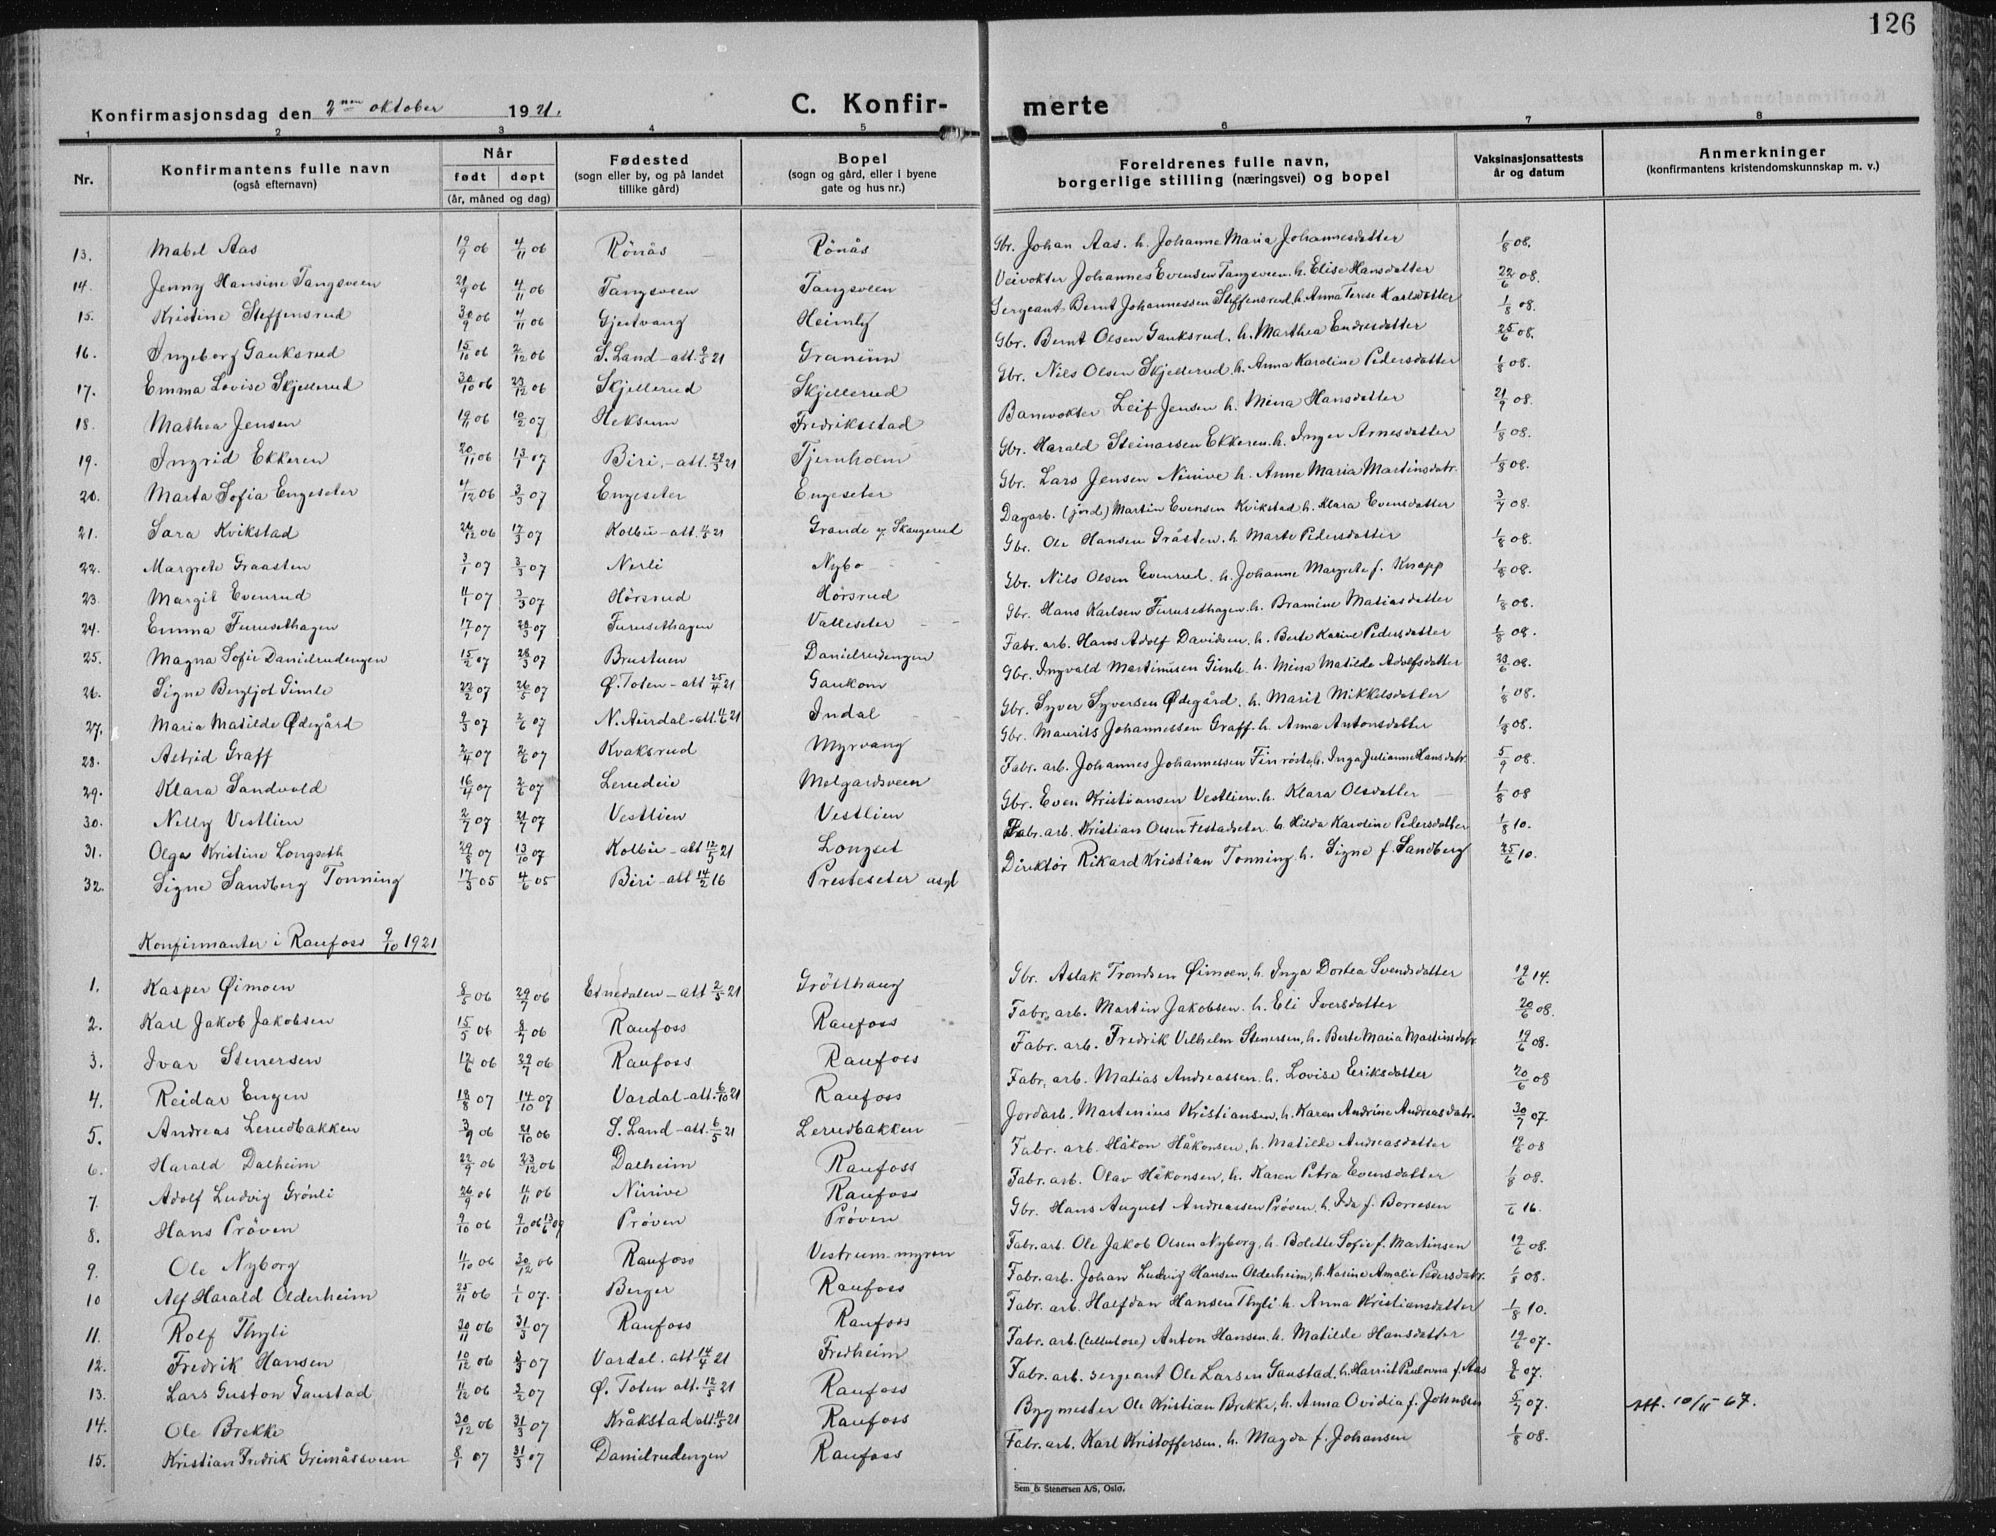 126
Konfirmasjonsdag den 2nen oktober 1921. C. Konfirmerte
1 2 3 4 5 6 7 8
Nr. Konfirmantens fulle navn (også efternavn) Når født døpt (år, måned og dag) Fødested (sogn eller by, og på landet tillike gård) Bopel (sogn og gård, eller i byene gate og hus nr.) Foreldrenes fulle navn, borgerlige stilling (næringsvei) og bopel Vaksinasjonsattests år og datum Anmerkninger (konfirmantens kristendomskunnskap m. v.)
13. Mabel Aas 19/9 06 4/11 06 Rönås Rönås Gbr. Johan Aas. h. Johanne Maria Johannesdatter 1/8 08.
14. Jenny Hansine Tangsveen 21/9 06 4/11 06 Tangsveen Tangsveen Veivokter Johannes Evensen Tangsveen. h. Elise Hansdatter 22/6 08.
15. Kristine Steffensrud 30/9 06 4/11 06 Gjestvang Heimly Sergeant Bernt Johannessen Steffensrud, h. Anna Terese Karlsdatter 1/8 08.
16. Ingeborg Gauksrud 15/10 06 2/12 06 S. Land - att. 9/5 21 Granum Gbr. Bernt Olsen Gauksrud. h. Marthea Endresdatter 25/6 08.
17. Emma Lovise Skjellerud 30/10 06 23/12 06 Skjellerud Skjellerud Gbr. Nils Olsen Skjellerud h. Anna Karoline Pedersdatter 1/8 08.
18. Mathea Jensen 19/11 06 10/2 07 Heksum Fredriksstad Banevokter Leif Jensen h. Mina Hansdatter 21/9 08.
19. Ingrid Ekkeren 20/11 06 13/1 07 Biri, - att. 29/3 21 Tjernholm Gbr. Harald Steinarsen Ekkeren. h. Inger Arnesdatter 1/8 08.
20. Marta Sofia Engeseter 4/12 06 3/3 07 Engeseter Engeseter Gbr. Lars Jensen Ninive h. Anne Maria Martinsdatr. 1/8 08.
21. Sara Kvikstad 26/12 06 17/3 07 Kolbu - att. 4/5 21 Grande u. Skaugerud Dagarb. (jord) Martin Evensen Kvikstad h. Klara Evensdatter 3/7 08.
22. Margrete Graasten 3/1 07 3/3 07 Nerli Nybo Gbr. Ole Hansen Gråsten. h. Marte Pedersdatter 1/8 08.
23. Margit Evenrud 4/1 07 3/3 07 Hörsrud Hörsrud Gbr. Nils Olsen Evenrud. h. Johanne Margrete f. Knapp 1/8 08.
24. Emma Furusethagen 17/1 07 28/3 07 Furusethagen Valleseter Gbr. Hans Karlsen Furusethagen. h. Bramine Matiasdatter 1/8 08.
25. Magna Sofie Danielrudengen 15/2 07 28/3 07 Brustuen Danielrudengen Fabr. arb. Hans Adolf Davidsen, h. Berte Karine Pedersdatter 1/8 08.
26. Signe Bergljot Gimle 22/2 07 26/5 07 Ø. Toten - att 25/4 21 Gaukom Gbr. Ingvald Martinusen Gimle. h. Mina Matilde Adolfsdatter 23/6 08.
27. Maria Matilde Ødegård 9/3 07 2/6 07 N. Aurdal - att. 4/6 21 Indal Gbr. Syver Syversen Ødegård. h. Marit Mikkelsdatter 1/8 08.
28. Astrid Graff 2/4 07 2/6 07 Kvaksrud Myrvang Gbr. Maurits Johannessen Graff. h. Anna Antonsdatter 1/8 08.
29. Klara Sandvold 16/4 07 2/6 07 Lerudeie Melgardsveen Fabr. arb. Johannes Johannessen Finröste, h. Inga Julianne Hansdatr. 5/9 08.
30. Nelly Vestlien 2/7 07 21/7 07 Vestlien Vestlien Gbr. Even Kristiansen Vestlien. h. Klara Olsdatter 1/8 08
31. Olga Kristine Longseth 29/8 07 13/10 07 Kolbu - att 12/5 21 Longset Fabr. arb. Kristian Olsen Festadseter h. Hilda Karoline Pedersdatter 1/8 10.
32. Signe Sandberg Tonning 17/3 05 4/6 05 Biri - att 14/2 16 Presteseter asyl Direktör Rikard Kristian Tonning. h. Signe f. Sandberg 25/6 10.
Konfirmanter i Raufoss 9/10 1921
1. Kasper Øimoen 8/5 06 29/7 06 Etnedalen - att 2/5 21 Grötthaug Gbr. Aslak Trondsen Øimoen, h. Inga Dortea Svendsdatter 19/6 14.
2. Karl Jakob Jakobsen 15/5 06 8/7 06 Raufoss Raufoss Fabr. arb. Martin Jakobsen. h. Eli Iversdatter 20/6 08.
3. Ivar Stenersen 17/6 06 29/7 06 Raufoss Raufoss Fabr. arb. Fredrik Vilhelm Stenersen, h. Berte Maria Martinsdatr. 19/6 08.
4. Reidar Engen 18/8 07 14/10 07 Vardal - att. 6/10 21 Raufoss Fabr. arb. Matias Andreassen. h. Lovise Eriksdatter 20/6 08
5. Andreas Lerudbakken 3/9 06 21/10 06 S. Land - att 6/5 21 Lerudbakken Jordarb. Martenius Kristiansen, h. Karen Andrine Andreasdatr. 30/7 07.
6. Harald Dalheim 22/9 06 23/12 06 Dalheim Raufoss Fabr. arb. Håkon Håkonsen, h. Matilde Andreasdatter 19/6 08
7. Adolf Ludvig Grönli 26/9 06 4/11 06 Ninive Raufoss Fabr. arb. Olav Håkonsen, h. Karen Petra Evensdatter 1/8 08.
8. Hans Pröven 9/10 06 9/10 06 13/6 09 Pröven Pröven Gbr. Hans August Andreassen Pröven, h. Ida f. Borresen /6 16.
9. Ole Nyborg 4/10 06 30/12 06 Raufoss Vestrum-myren Fabr. arb. Ole Jakob Olsen Nyborg, h. Bolette Sofie f. Martinsen 19/6 08.
10 Alf Harald Olderheim 25/11 06 1/1 07. Berger Raufoss Fabr. arb. Johan Ludvig Hansen Olderheim, h. Karine Amalie Pedersdatr. 1/8 08.
11. Rolf Thyli 30/11 06 31/3 07 Raufoss Raufoss Fabr. arb. Halfdan Hansen Thyli h. Anna Kristiansdatter 1/8 10.
12. Fredrik Hansen 10/12 06 3/3 07 Vardal. att 14/4 21 Fredheim Fabr. arb (cellulose) Anton Hansen. h. Matilde Hansdatter 19/6 07.
13. Lars Guston Gaustad 11/12 06 3/2 07 Ø. Toten att. 12/5 21 Raufoss Fabr. arb. sergeant Ole Larsen Gaustad, h. Harriet Paulovna f. Aas 8/6 07.
14. Ole Brekke 30/12 06 31/3 07 Kråkstad att. 11/5 21 Raufoss Bygmester Ole Kristian Brekke, h. Anna Ovidia f. Johnsen 5/7 07. Att. 10/11 67.
15. Kristian Fredrik Grimåsveen 8/1 07 31/3 07 Danielrudengen Raufoss Fabr. arb. Karl Kristoffersen, h. Magda f. Johansen 1/8 08.
Sem & Stenersen A/S, Oslo.